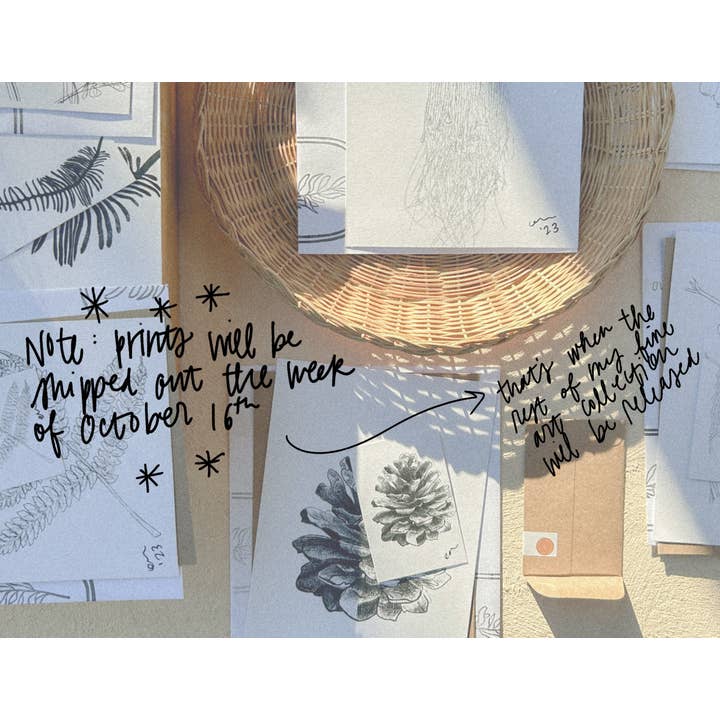 '23
Note: prints will be
shipped out the week
of October 16th
that's when the
rest of my fine
art collection
will be released
'23